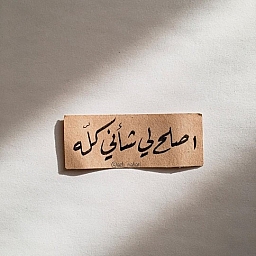 اصلح لي شأني كلّه